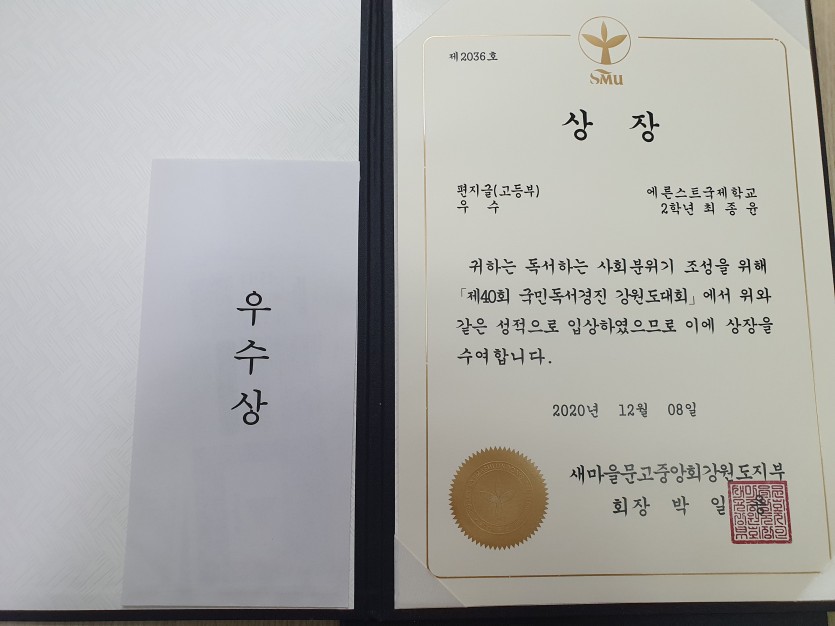 우
수
상
제2036호
SMU
상 장
편지글(고등부)
우 수
에른스트국제학교
2학년 최 종 윤
귀하는 독서하는 사회분위기 조성을 위해
「제40회 국민독서경진 강원도대회」에서 위와
같은 성적으로 입상하였으므로 이에 상장을
수여합니다.
2020년 12월 08일
새마을문고중앙회강원도지부
회장 박 일